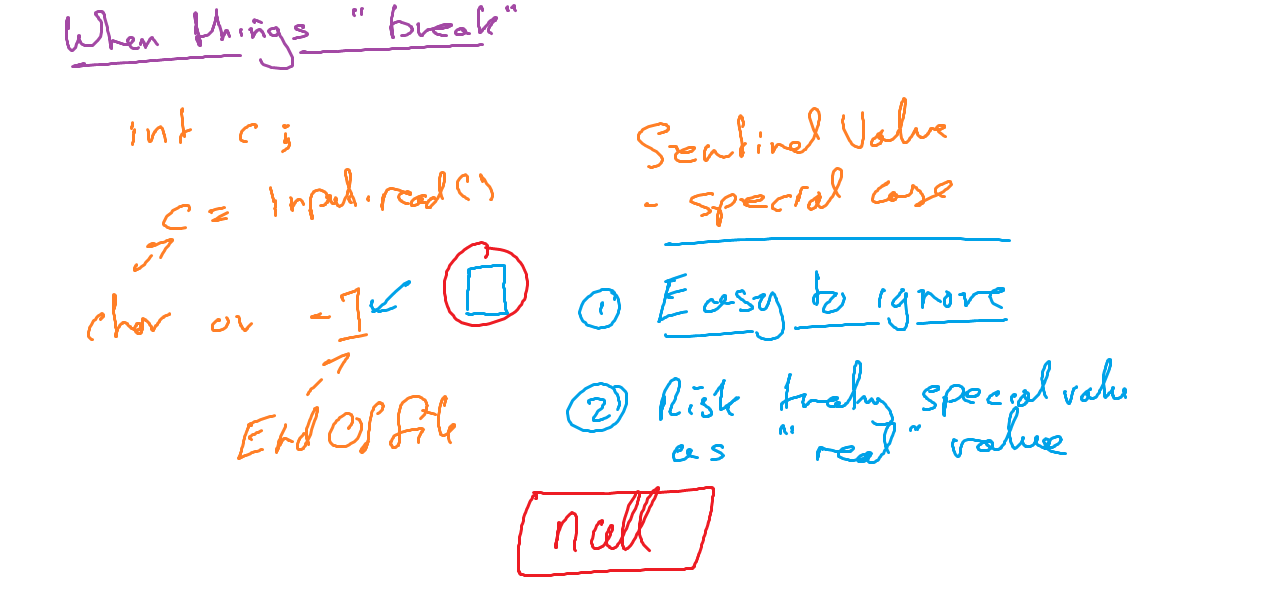 When things "break"
int c;
c = Input.read()
char or -1
End Of File
Sentinel Value
- special case
① Easy to ignore
② Risk treating special value
as "real" value
null